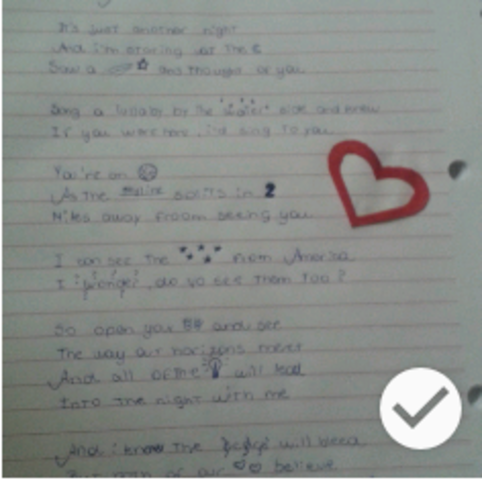 It's just another night
And i'm staring at the
Saw a and thought of you
Sang a lullaby by the water side and knew
If you were here, i'd sing to you
You're on
As the skyline splits in 2
Miles away froom seeing you
I can see the from America
I wonder, do so see them too?
So open you and see
The way our horizons meet
And all of the will lead
Into the night with me
And i know the will bleed
But both of our believe